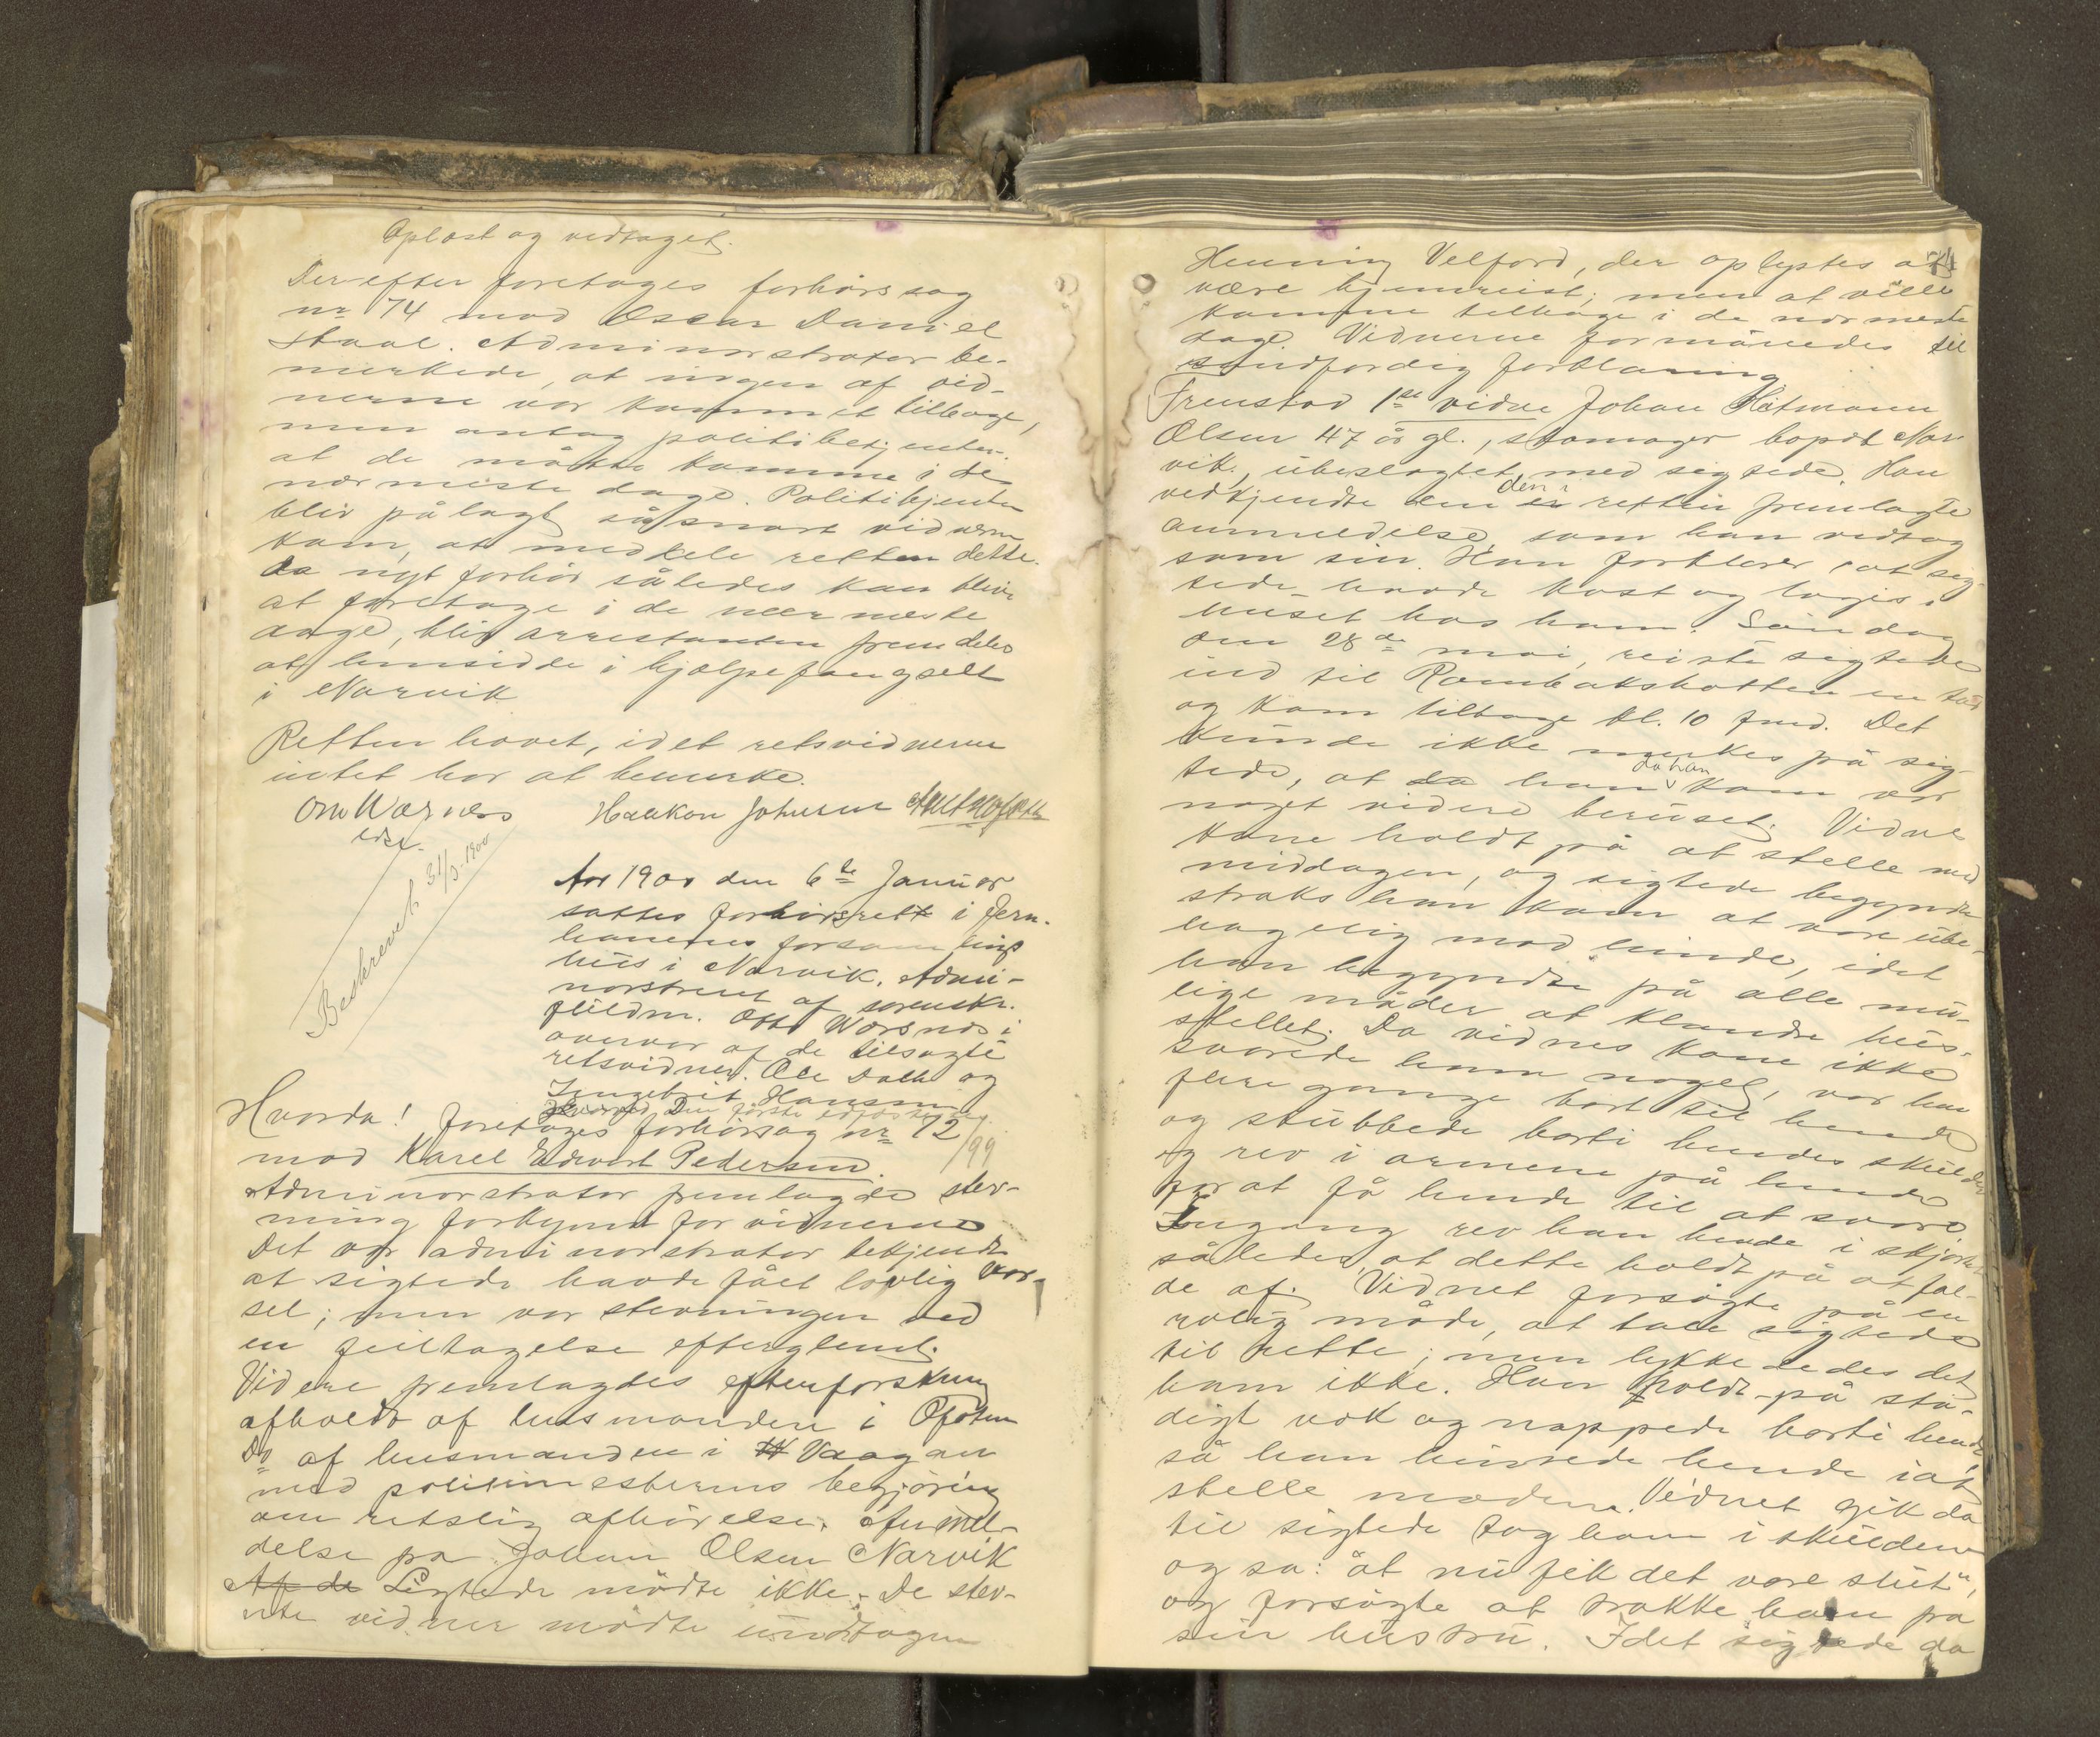 Oplæst og vedtaget.
Derefter foretages forhørssag
nr 74 mod Oscar Daniel
Staal. Administrator be-
merkede, at ingen af vid-
nerne var kommet tilbage,
men antog politibetjenten
at de måtte komme i de
nærmeste dage. Politibetjenten
blir pålagt såsnart vidnerne
kom, at meddele retten dette.
Da nyt forhør således kan blive
at foretage i de nærmeste
dage, blir arrestanten fremdeles
at hensidde i hjælpefængselet
i Narvik
Retten hævet, idet retsvidnerne
intet har at bemerke.
Otto Wærness Haakon Johnsen
edsv.
Beskrevet 31/3-1900
Aar 1900 den 6te Januar
sattes forhørsrett i Jern-
banens forsamlings
hus i Narvik. Admi-
nistreret af sorenskr.
fuldm. Otto Wærness i
overvær af de tilsagte
retsvidner. Ole Dalhe og
Ingebrit Hansen
Hvorda! foretages forhørsag nr 72/99
mod Karel Edvart Pedersen.
Administrator fremlagde stev-
ning forkynt for vidnerne
Det var administrator bekjendt
at sigtede havde fået lovlig var-
sel; men var stevningen ved
en feiltagelse efterglemt.
Videre fremlagdes efterforskning
afholdt af lensmanden i Ofoten
Do af lensmanden i Vaagan
med politimesterens begjøring
om retslig afhørelse. Anmel-
delse fra Johan Olsen Narvik
Af de Sigtede mødte ikke. De stev-
nte vidner mødte undtagen
74
Henning Velfjord, der oplystes at
være hjemreist; men at ville
komme tilbage i de nærmeste
dage. Vidnerne formånedes til
sandfærdig forklaring
Fremstod 1ste vidne Johan Hitmann
Olsen 47 år gl., skomager bopæl Nar-
vik, ubeslægtet med sigtede. Han
vedkjendte den i retten fremlagte
anmeldelse, som han vedtog
som sin. Han forklarer, at sig-
tede havde kost og logis i
huset hos ham. Søndag
den 28de mai, reiste sigtede
ind til Rombaksbotten en tur
og kom tilbage kl. 10 fmd. Det
kunde ikke merkes på sig-
tede, at da han da han kom var
noget videre beruset. Vidnets
kone holdt på at stelle med
middagen, og sigtede begyndte
straks han kom at være ube-
hagelig mod hende, idet
han begyndte på alle mu-
lige måder at klandre hus-
stellet. Da vidnes kone ikke
svarede ham noget, var han
flere gange bort til hende
og stubbede borti hendes skulder
og rev i armene på hende
for at få hende til at svare,
Engang rev han hende i skjørtet
således, at dette holdt på at fal-
de af. Vidnet forsøgte på en
rolig måde, at tale sigtede
til rette; men lykkededes det
ham ikke. Han holdt på sta-
digt væk og nappede borti hende
så han hindrede hende i at
stelle maden. Vidnet gik da
til sigtede tog ham i skulderen
og sa: "at nu fik det være slut",
og forsøgte at trække ham fra
sin hustru. Idet sigtede da